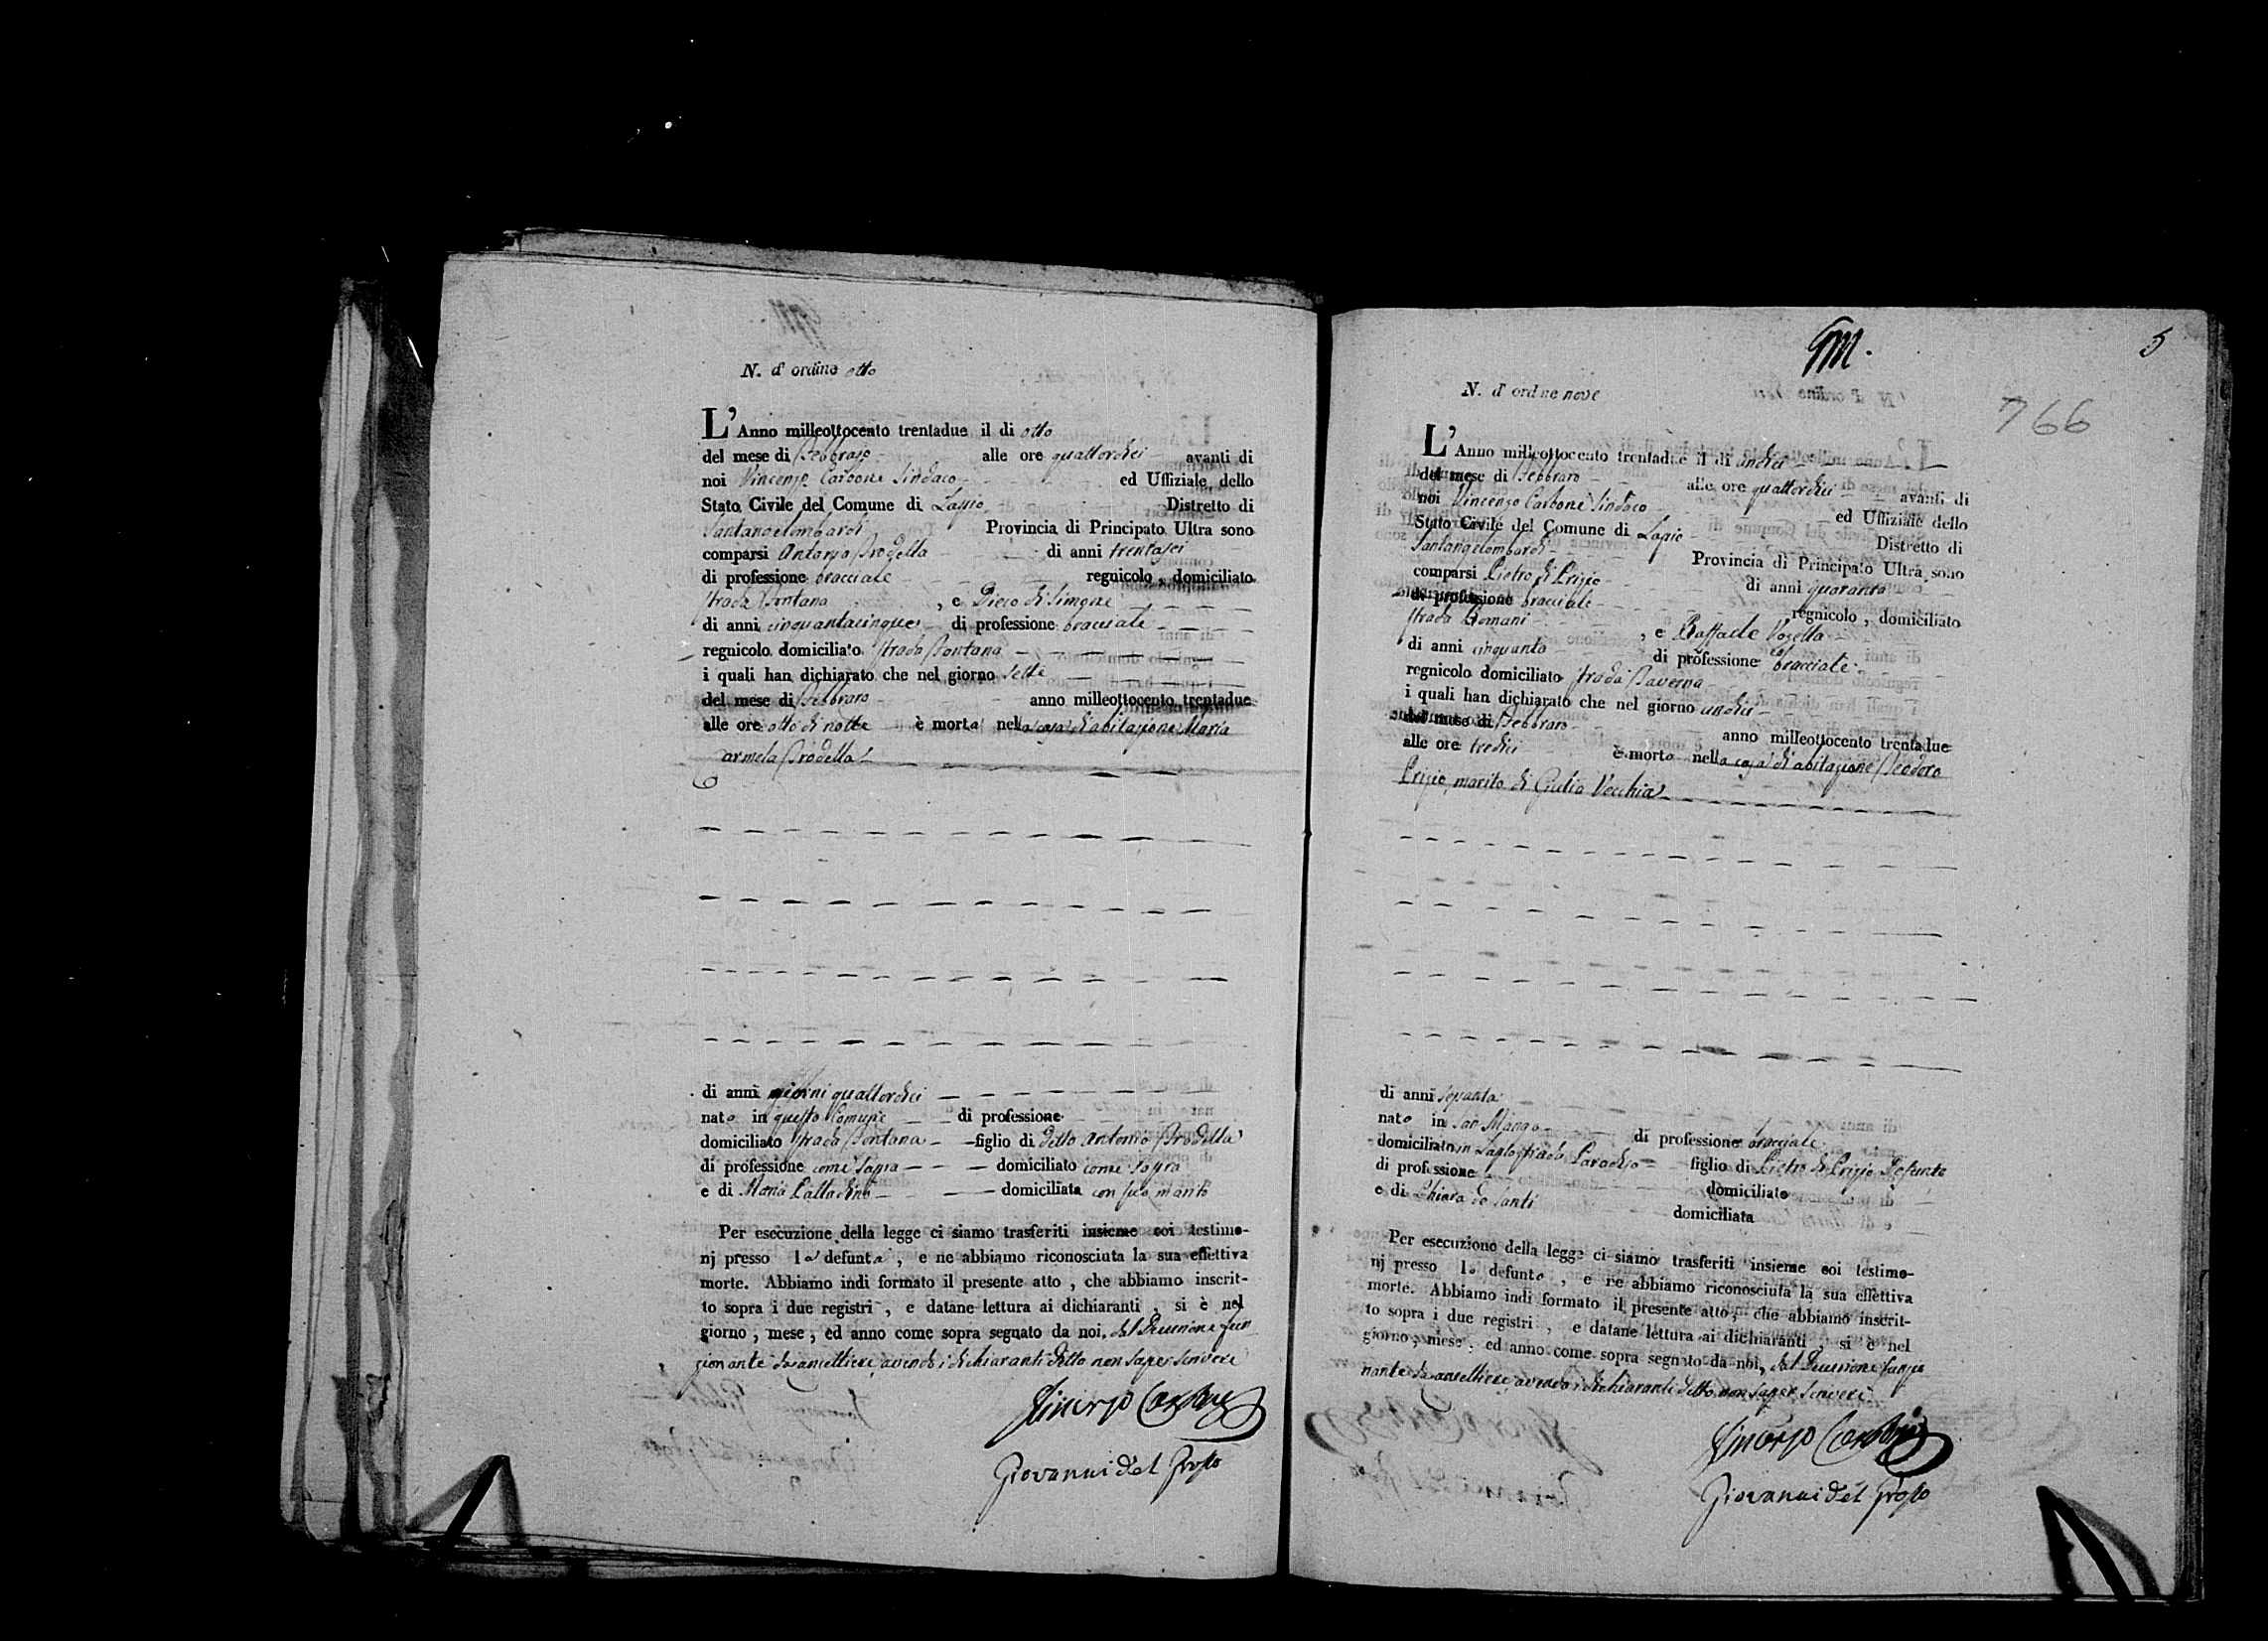 N. d' ordine otto
L'Anno milleottocento trentadue il dì otto
del mese di Febbraro alle ore quattordici avanti di
noi Vincenzo Carbone Sindaco ed Uffiziale dello
Stato Civile del Comune di Lapio Distretto di
Santangelombardi Provincia di Principato Ultra sono
comparsi Antonio di anni trentasei
di professione bracciale regnicolo, domiciliato
strada Fontana, e di Simone
di anni cinquantacinque di professione bracciale
regnicolo domiciliato strada Fontana
i quali han dichiarato che nel giorno sette
del mese di Febbraro anno milleottocento trentadue
alle ore otto di notte è morta nella casa di abitazione Maria
Carmela
di anni giorni quattordici
nato in questo Comune di professione
domiciliato strada Fontana figlio di detto Antonio
di professione come sopra domiciliato come sopra
e di Maria domiciliata con suo marito
Per esecuzione della legge ci siamo trasferiti insieme coi testimo-
nj presso la defunta, e ne abbiamo riconosciuta la sua effettiva
morte. Abbiamo indi formato il presente atto, che abbiamo inscrit-
to sopra i due registri, e datane lettura ai dichiaranti, si è nel
giorno, mese, ed anno come sopra segnato da noi, dal Decurione fun
zionante da Cancelliere avendo i dichiaranti detto non saper scrivere
Vincenzo Carbone
Giovanni del Grosso
M.
5
766
N. d' ordine nove
L'Anno milleottocento trentadue il dì undici
del mese di Febbraro alle ore quattordici avanti di
noi Vincenzo Carbone Sindaco ed Uffiziale dello
Stato Civile del Comune di Lapio Distretto di
Santangelombardi Provincia di Principato Ultra sono
comparsi Pietro di Prizio di anni quaranta
di professione bracciale regnicolo, domiciliato
strada Romani, e Raffaele Vozella
di anni cinquanta di professione bracciale
regnicolo domiciliato strada Taverna
i quali han dichiarato che nel giorno undici
del mese di Febbraro anno milleottocento trentadue
alle ore tredici è morto nella casa di abitazione Teodoro
Prizio, marito di Giulia Vecchia
di anni sepanta
nato in San Mango di professione bracciale
domiciliato in Lapio strada figlio di Pietro di Prizio defunto
di professione domiciliato
e di Chiara de Santi domiciliata
Per esecuzione della legge ci siamo trasferiti insieme coi testimo-
nj presso lo defunto, e ne abbiamo riconosciuta la sua effettiva
morte. Abbiamo indi formato il presente atto, che abbiamo inscrit-
to sopra i due registri, e datane lettura ai dichiaranti, si è nel
giorno, mese, ed anno come sopra segnato da noi, dal Decurione funzio
nante da Cancelliere avendo i dichiaranti detto non saper scrivere
Vincenzo Carbone
Giovanni del Grosso